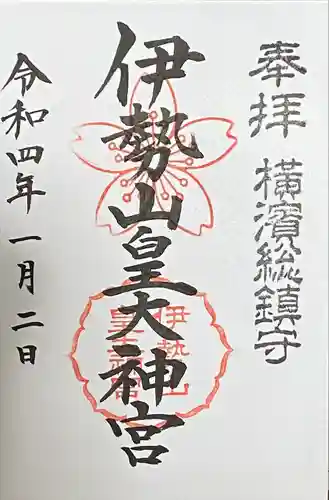 奉拝
横濱総鎮守
伊勢山皇大神宮
伊勢山
皇大神宮
令和四年一月二日